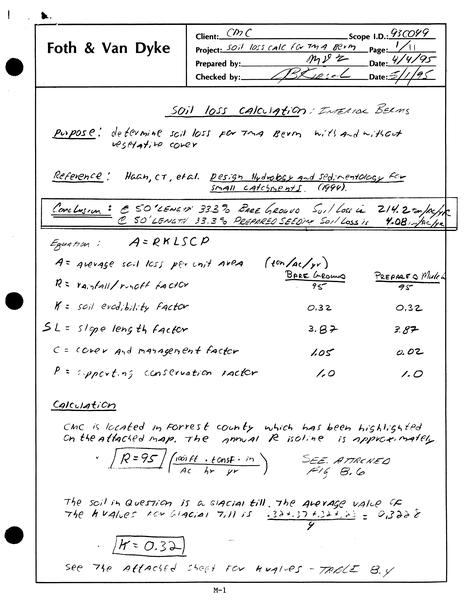 Foth & Van Dyke
Client: CMC Scope I.D.: 93C049
Project: Soil loss calc for TMA Berm Page: 1/11
Prepared by: Date: 4/4/95
Checked by: Date: 5/1/95
Soil loss calculation: Interior Berms
Purpose: determine soil loss for TMA Berm with and without
vegetative cover
Reference: Haan, CT, et al. Design Hydrology and Sedimentology for
small catchments. (1994).
Conclusion: @ 50' LENGTH 33.3% BARE GROUND Soil Loss is 214.2 ton/ac/yr
@ 50' LENGTH 33.3% PREPARED SEEDING Soil loss is 4.08 ton/ac/yr
Equation: A = RKLSCP
A = average soil loss per unit area (ton/ac/yr)
BARE GROUND PREPARED Mulch
R = rainfall/runoff factor 95 95
K = soil erodibility factor 0.32 0.32
SL = slope length factor 3.87 3.87
C = cover and management factor 1.05 0.02
P = supporting conservation factor 1.0 1.0
Calculation
CMC is located in Forrest county which has been highlighted
on the attached map. The annual R isoline is approximately
R = 95 (100 ft . tonsf . in / Ac hr yr) SEE ATTACHED
FIG 8.6
The soil in Question is a glacial till. The average value of
the K values for Glacial Till is .32+.37+.32+ / 4 =
K = 0.32
See the attached sheet for K values - TABLE 8.4
M-1